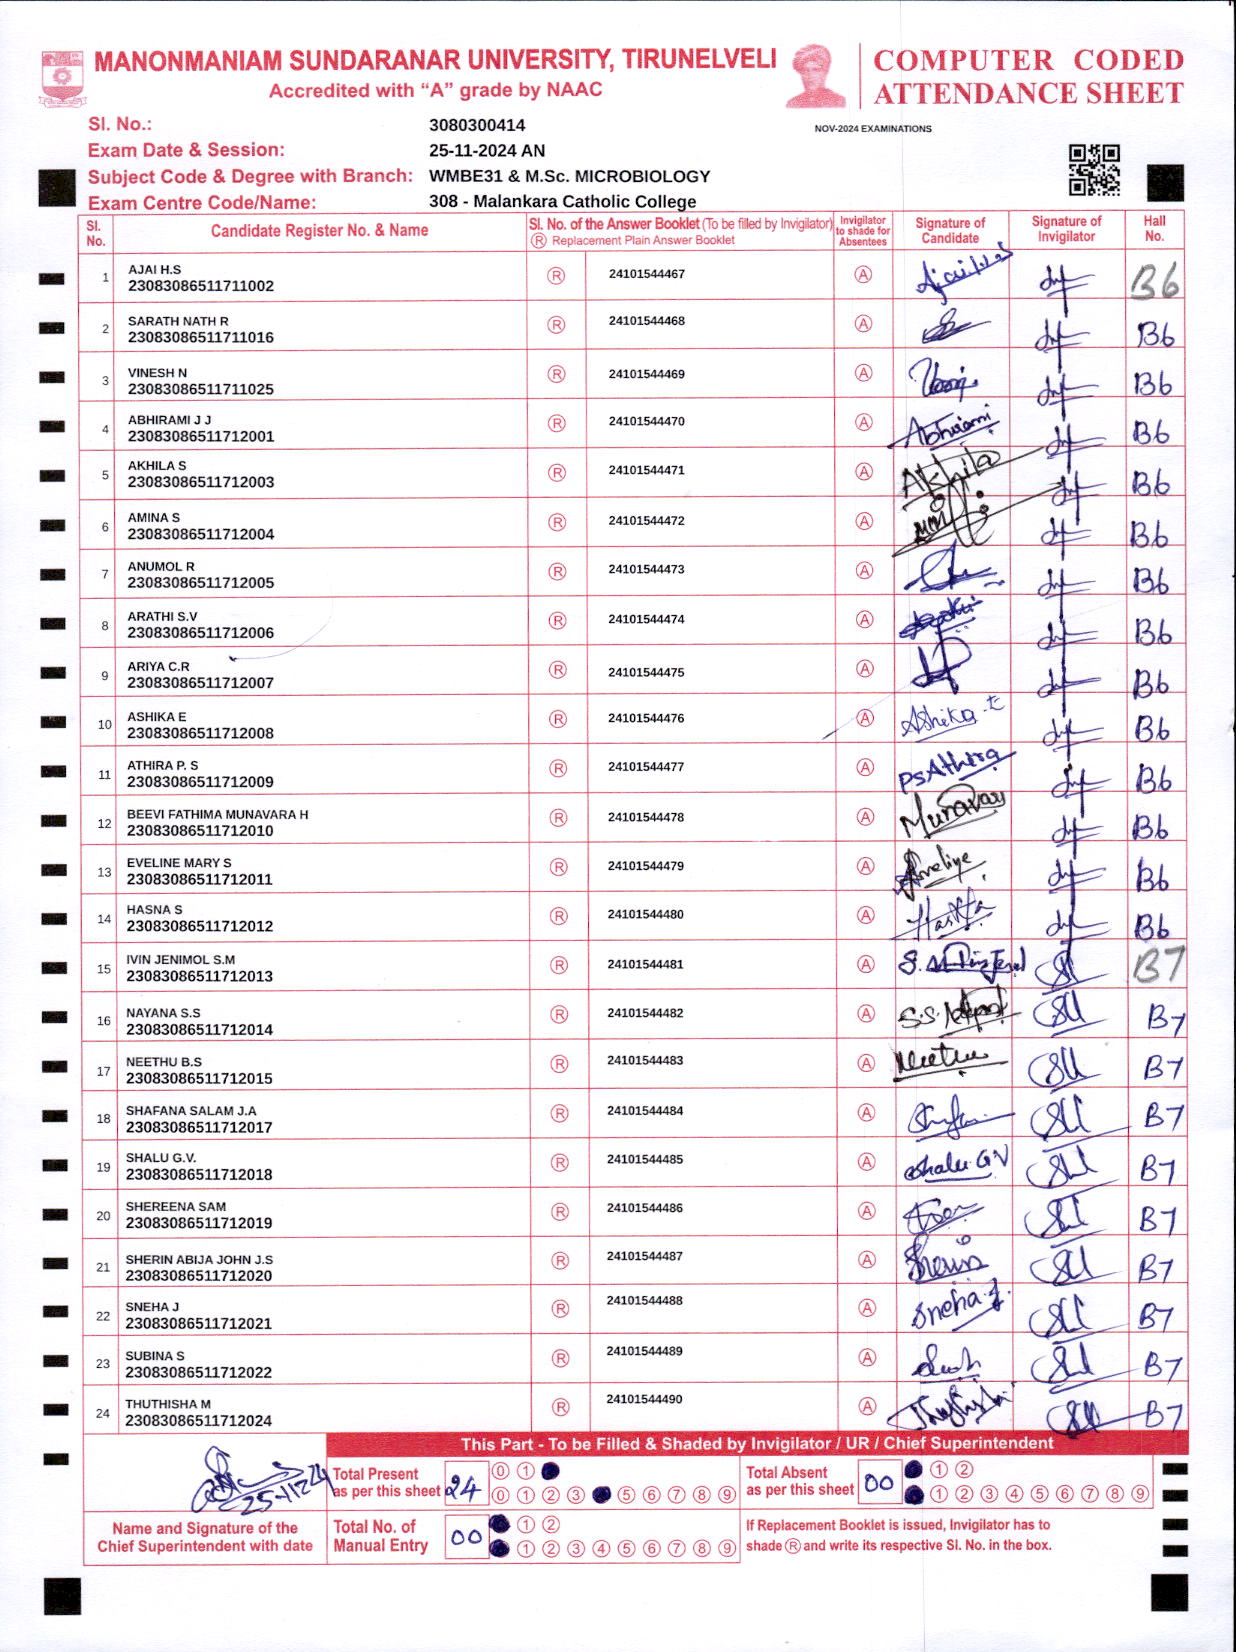 MANONMANIAM SUNDARANAR UNIVERSITY, TIRUNELVELI
Accredited with “A” grade by NAAC
COMPUTER CODED
ATTENDANCE SHEET
Sl. No.: 3080300414
NOV-2024 EXAMINATIONS
Exam Date & Session: 25-11-2024 AN
Subject Code & Degree with Branch: WMBE31 & M.Sc. MICROBIOLOGY
Exam Centre Code/Name: 308 - Malankara Catholic College
Sl. No. Candidate Register No. & Name Sl. No. of the Answer Booklet (To be filled by Invigilator) Ⓡ Replacement Plain Answer Booklet Invigilator to shade for Absentees Signature of Candidate Signature of Invigilator Hall No.
1 AJAI H.S Ⓡ 24101544467 Ⓐ B6
23083086511711002
2 SARATH NATH R Ⓡ 24101544468 Ⓐ B6
23083086511711016
3 VINESH N Ⓡ 24101544469 Ⓐ B6
23083086511711025
4 ABHIRAMI J J Ⓡ 24101544470 Ⓐ Abhirami B6
23083086511712001
5 AKHILA S Ⓡ 24101544471 Ⓐ Akhila B6
23083086511712003
6 AMINA S Ⓡ 24101544472 Ⓐ B6
23083086511712004
7 ANUMOL R Ⓡ 24101544473 Ⓐ B6
23083086511712005
8 ARATHI S.V Ⓡ 24101544474 Ⓐ B6
23083086511712006
9 ARIYA C.R Ⓡ 24101544475 Ⓐ B6
23083086511712007
10 ASHIKA E Ⓡ 24101544476 Ⓐ Ashika E B6
23083086511712008
11 ATHIRA P. S Ⓡ 24101544477 Ⓐ PSAthira B6
23083086511712009
12 BEEVI FATHIMA MUNAVARA H Ⓡ 24101544478 Ⓐ B6
23083086511712010
13 EVELINE MARY S Ⓡ 24101544479 Ⓐ B6
23083086511712011
14 HASNA S Ⓡ 24101544480 Ⓐ B6
23083086511712012
15 IVIN JENIMOL S.M Ⓡ 24101544481 Ⓐ B7
23083086511712013
16 NAYANA S.S Ⓡ 24101544482 Ⓐ B7
23083086511712014
17 NEETHU B.S Ⓡ 24101544483 Ⓐ Neethu B7
23083086511712015
18 SHAFANA SALAM J.A Ⓡ 24101544484 Ⓐ B7
23083086511712017
19 SHALU G.V. Ⓡ 24101544485 Ⓐ Shalu G.V B7
23083086511712018
20 SHEREENA SAM Ⓡ 24101544486 Ⓐ B7
23083086511712019
21 SHERIN ABIJA JOHN J.S Ⓡ 24101544487 Ⓐ Sherin B7
23083086511712020
22 SNEHA J Ⓡ 24101544488 Ⓐ Sneha.J. B7
23083086511712021
23 SUBINA S Ⓡ 24101544489 Ⓐ B7
23083086511712022
24 THUTHISHA M Ⓡ 24101544490 Ⓐ B7
23083086511712024
This Part - To be Filled & Shaded by Invigilator / UR / Chief Superintendent
Total Present as per this sheet 24
0 1
0 1 2 3 5 6 7 8 9
Total Absent as per this sheet 00
1 2
1 2 3 4 5 6 7 8 9
Name and Signature of the
Chief Superintendent with date
Total No. of Manual Entry 00
1 2
1 2 3 4 5 6 7 8 9
If Replacement Booklet is issued, Invigilator has to
shade Ⓡ and write its respective Sl. No. in the box.